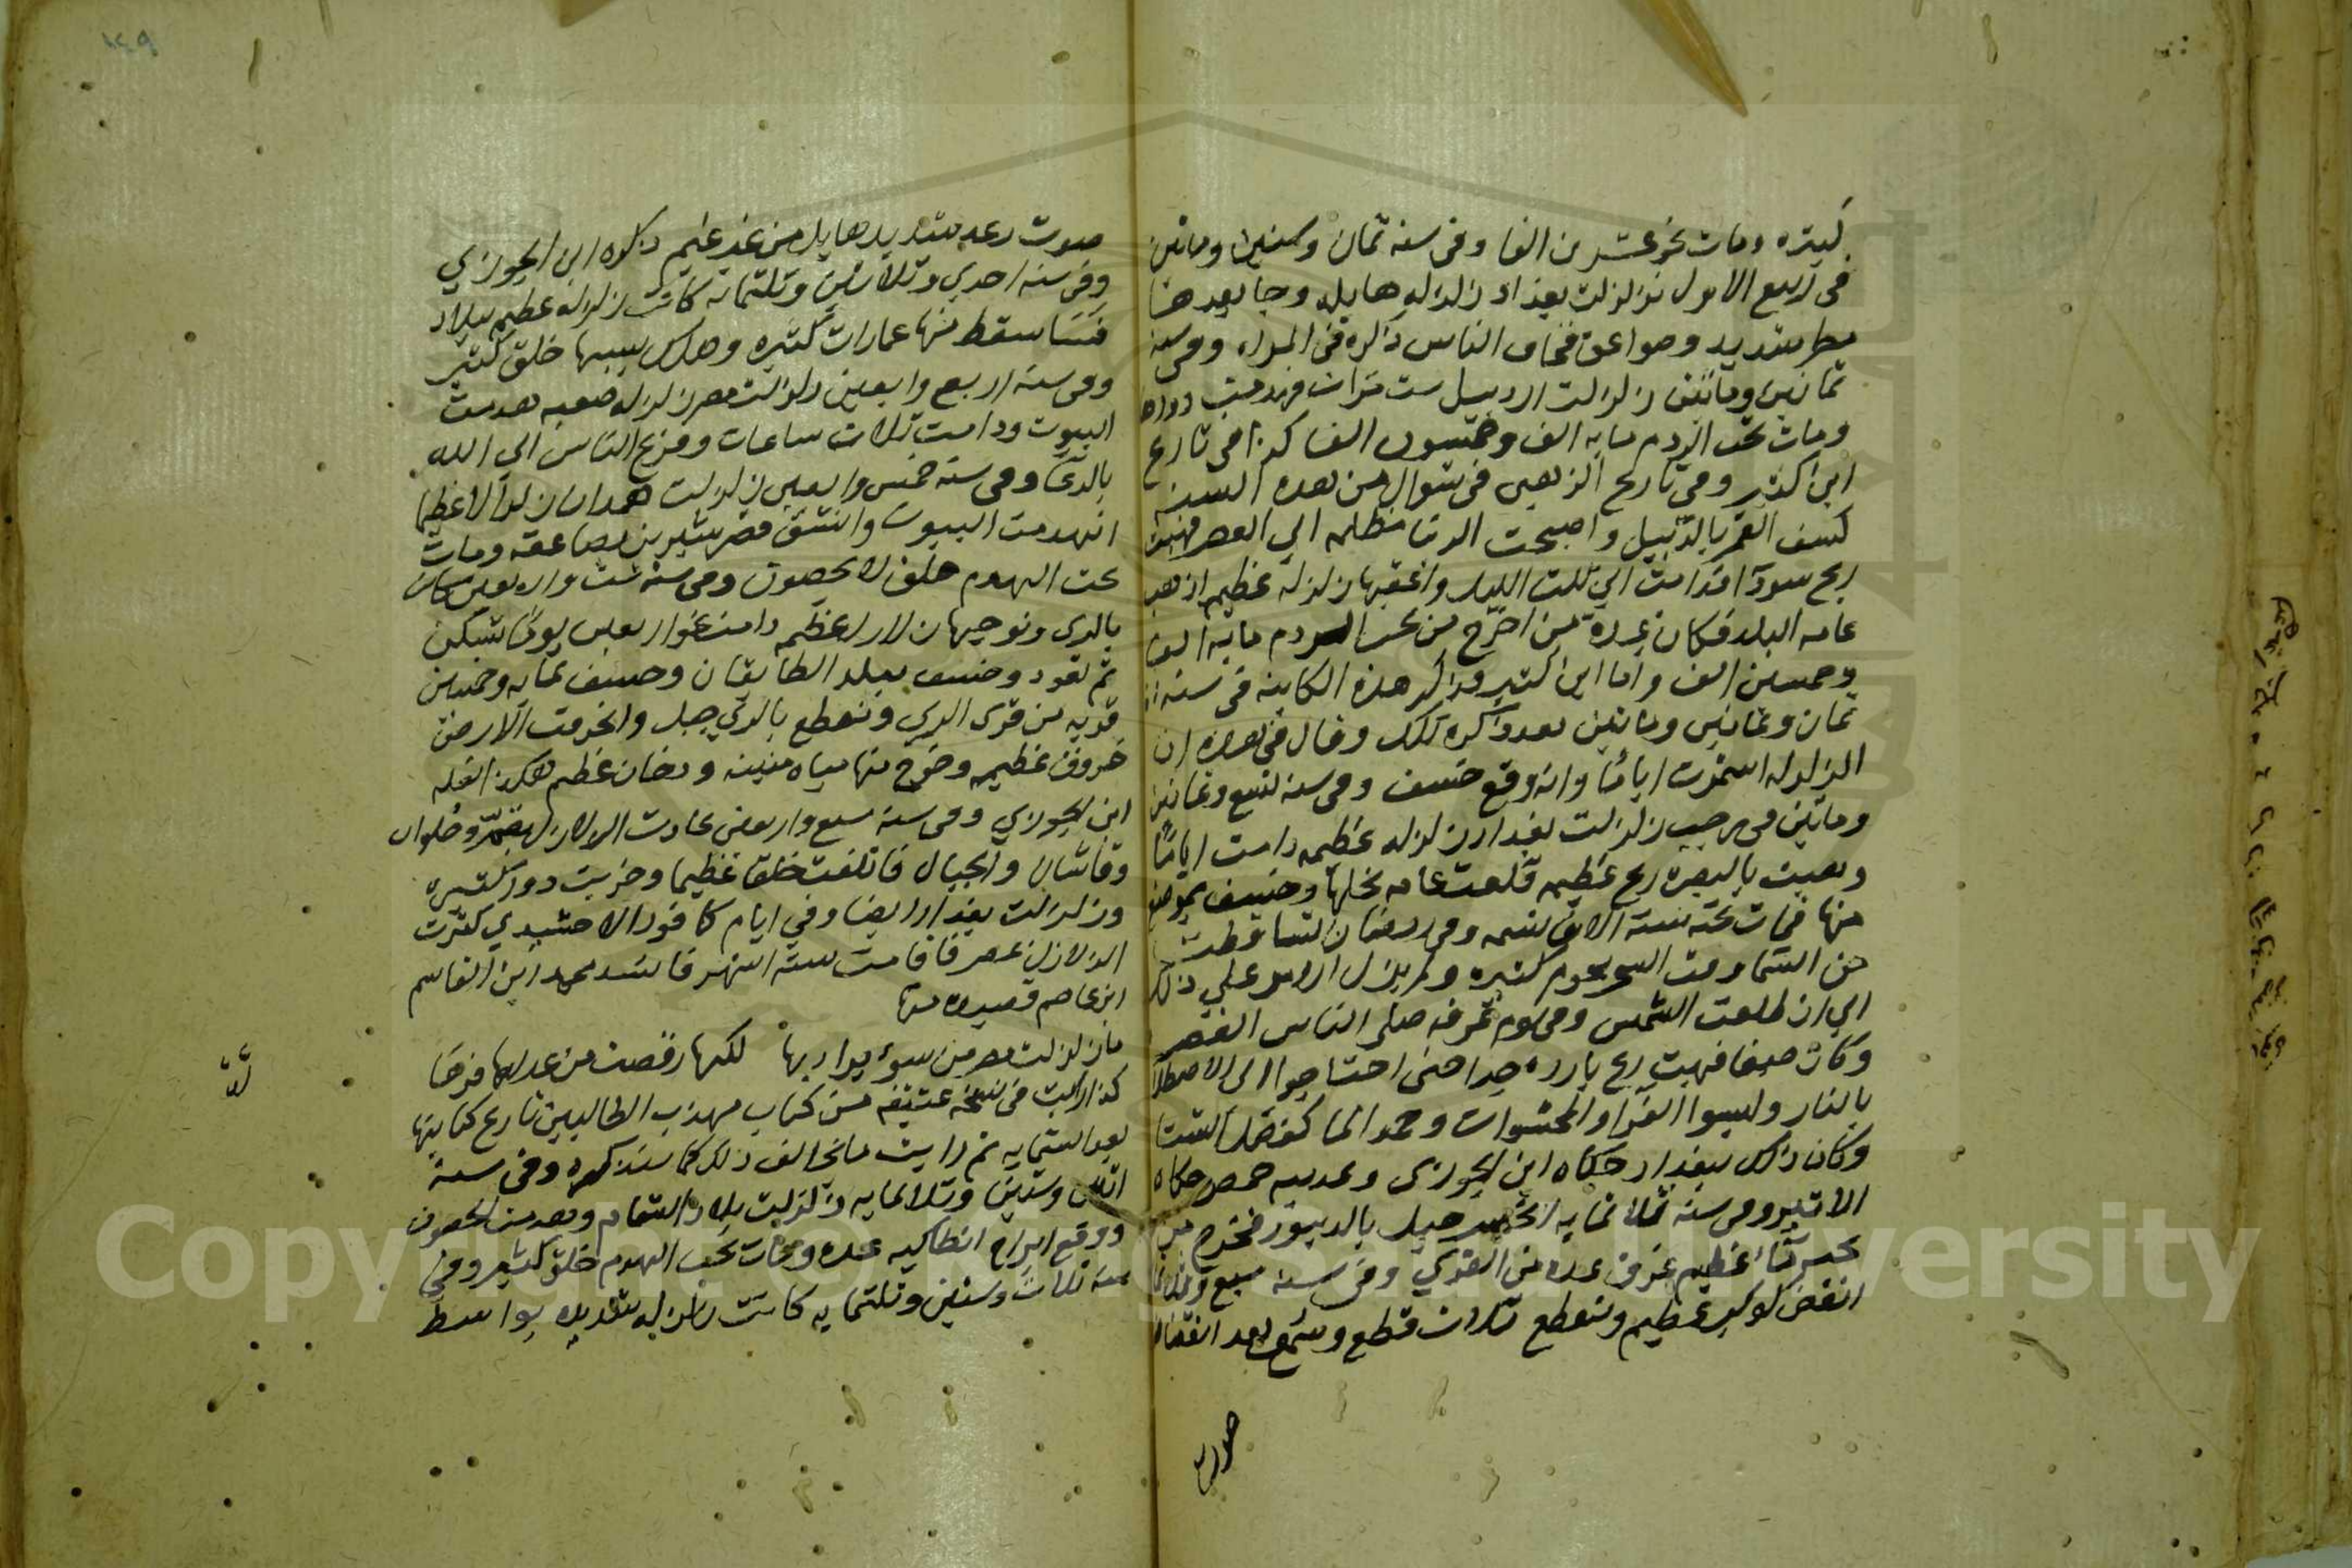 كبيره ومات نحو عشرين الفا وفى سنه ثمان وستين وماتين
فى ربيع الاول تزلزلت بغداد زلزله هايله وجا بعدها
مطر شديد وصواعق فخاف الناس ذاكره فى المراه وفى سنه
ثمانين وماتين زلزلت اردبيل ست مرات فهدمت دورها
ومات تحت الردم مايه الف وخمسون الفا كذا فى تاريخ
ابن كثير وفى تاريخ الذهبى فى شوال من هذه السنه
كسف القمر بالدبيل واصبحت الدنيا مظلمه الي العصر فهبت
ريح سودآ فدامت الي ثلث الليل واعقبها زلزله عظيم اذهبت
عامه البلد فكان عدة من اخرج من تحت الردم مايه الف
وخمسين الف واما ابن كثير فذاكر هذه الكاينه فى سنه
ثمان وثمانين وماتين وقال فى هذه ان
الزلزله استمرت اياما وانه وقع خسف وفى سنه تسع وثمانين
وماتين فى رجب زلزلت بغداد زلزله عظيمه دامت اياما
وهبت بالبصره ريح عظيمه قلعت عامه نخلها وخسف بموضع
منها فمات تحته ستة الاف نسمه وفى رمضان تساقطت
من السما وقت السحر نجوم كثيره ولم يزل الامر على ذلك
الي ان طلعت الشمس وفى يوم عرفه صلى الناس العصر
وكان صيفا فهبت ريح بارده جدا حتى احتاجوا الى الاصطلا
بالنار ولبسوا الفرا والمحشوات وجمد الما كفصل الشتا
وكان ذلك ببغداد حكاه ابن الجوزى وبمدينه حمص حكاه
الاثير وفى سنه ثلاثمايه جبل بالدينور فخرج من
تحته مآ عظيم غرق عده من القري وفى سنه سبع وثلاثما
انقض كوكب عظيم وتقطع ثلاث قطع وسمع بعد انقضا
صوت
صوت رعد شديد هايل من غير غيم ذكره ابن الجوزي
وفى سنه احدي وثلاثين وثلثمايه كانت زلزله عظيم ببلاد
فسا سقط منها عمارات كثيره وهلك بسببها خلق كثير
وفى سنه اربع واربعين زلزلت مصر زلزله صعبه هدمت
البيوت ودامت ثلاث ساعات وفزع الناس الي الله
بالدعآ وفى سنه خمس واربعين زلزلت همدان زلزالا عظيما
انهدمت البيوت وانشق قصر شيرين بصاعقه ومات
تحت الهدم خلق لا يحصون وفى سنه ست واربعين كان
بالري ونوحيها زلازل عظيمه دامت نحو اربعين يوما تسكن
ثم تعود وخسف ببلد الطالقان وخسف بمايه وخمسين
قريه من قرى الري وتقطع بالري جبل وانخرقت الارض
خروق عظيمه وخرج منها مياه منتنه ودخان عظيم هكذا نقله
ابن الجوزي وفى سنه سبع واربعين عادت الزلازل بقم وحلوان
وقاشان والجبال فاتلفت خلقا عظيما وخربت دور كثيره
وزلزلت بغداد ايضا وفى ايام كافور الاخشيدي كثرت
الزلازل بمصر فاقامت سته اشهر فانشد محمد ابن القاسم
ابن عاصم قصيده منها
ما زلزلت مصر من سوء يراد بها لكنها رقصت من عدله فرحا
كذا رايت فى نسخه عتيقه من كتاب مهذب الطالبين تاريخ كتابتها
بعد الستمايه ثم رايت ما يخالف ذلك كما سنذكره وفى سنة
اثنين وستين وثلاثمايه زلزلت بلاد الشام وهدمت الحصون
ووقع ابراج انطاكيه عده ومات تحت الهدم خلق كثير وفى
سنه ثلاث وستين وثلثمايه كانت زلزله شديده بواسط